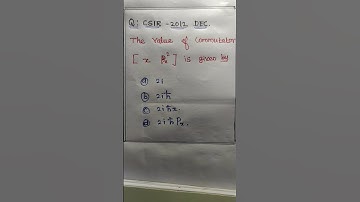 Q: CSIR -2012 DEC.
The value of Commutator
[x, Pₓ²] is given by
ⓐ 2i
ⓑ 2iħ
ⓒ 2iħx.
ⓓ 2iħPₓ.